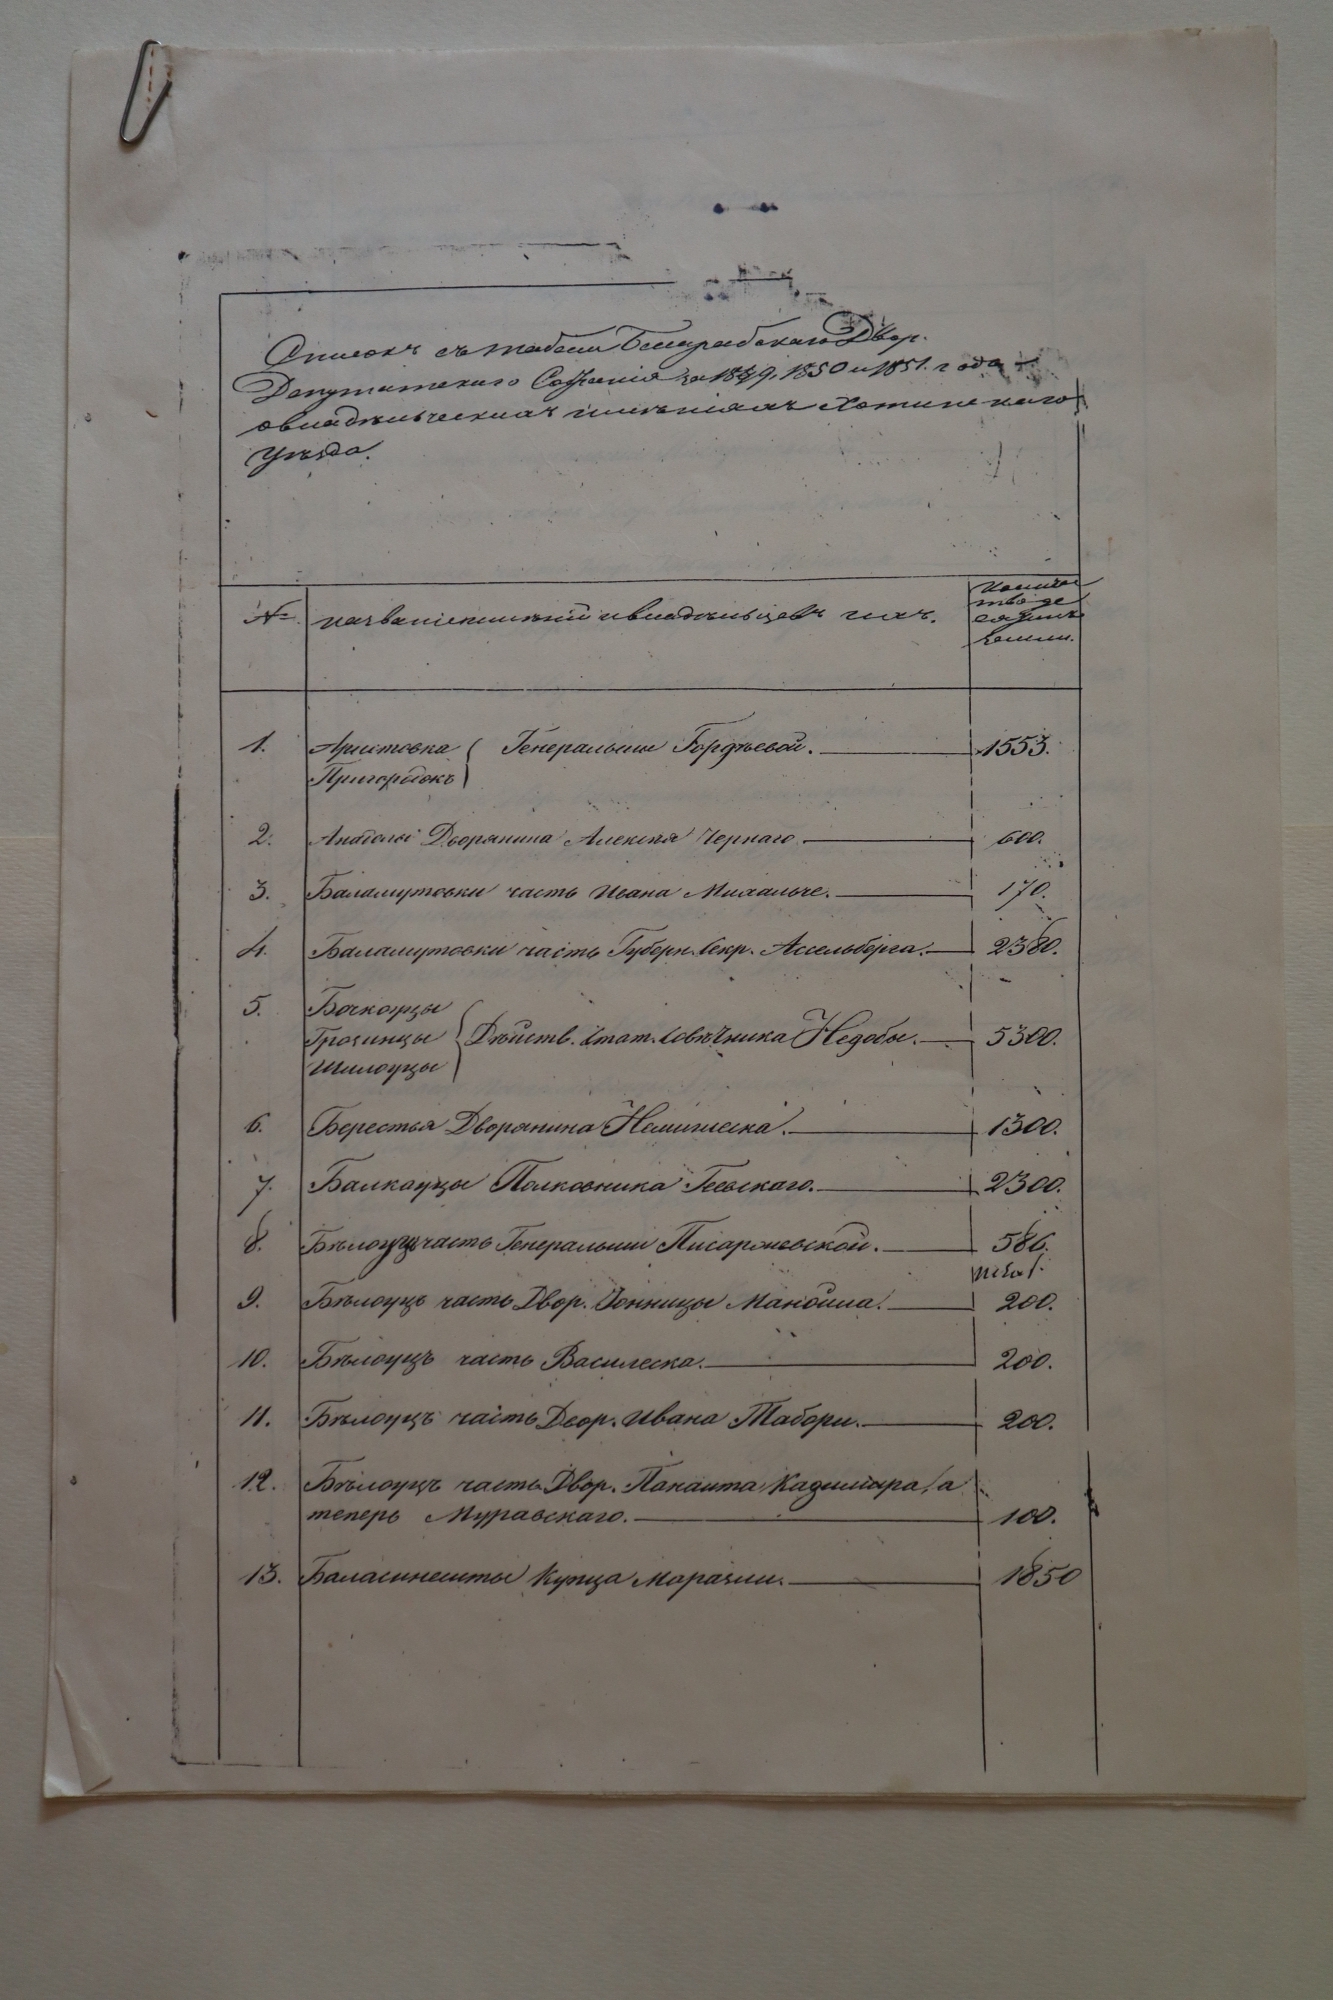 Списокъ съ табели Бессарабскаго Двор.
Депутатскаго Собранія за 1849, 1850 и 1851. года
о владѣльческихъ имѣніяхъ Хотинскаго
Уѣзда.
№ названіе имѣній и владѣльцевъ ихъ. Количес
тво де
сятинъ
земли.
1. Аристовка Генеральши Гордѣевой. 1553.
Пригородокъ
2. Анадолы Дворянина Алексѣя Чернаго 600.
3. Баламутовки часть Ивана Михальче. 170.
4. Баламутовки часть Губерн. Секр. Ассельберга. 2380.
5. Бочкоуцы
Грозинцы Дѣйств. Стат. Совѣтника Недобы. 5300.
Шилоуцы
6. Берестья Дворянина 1300.
7. Балкоуцы Полковника 2300.
8. Бѣлоуцъ часть Генеральши Писаржевской. 586.
9. Бѣлоуцъ часть Двор. Іонницы Манойла. 200.
10. Бѣлоуцъ часть Василеска. 200.
11. Бѣлоуцъ часть Двор. Ивана Табори. 200.
12. Бѣлоуцъ часть Двор. Панаита Казимира, а
теперь Муравскаго. 100.
13. Баласинешты Купца Маразли. 1850